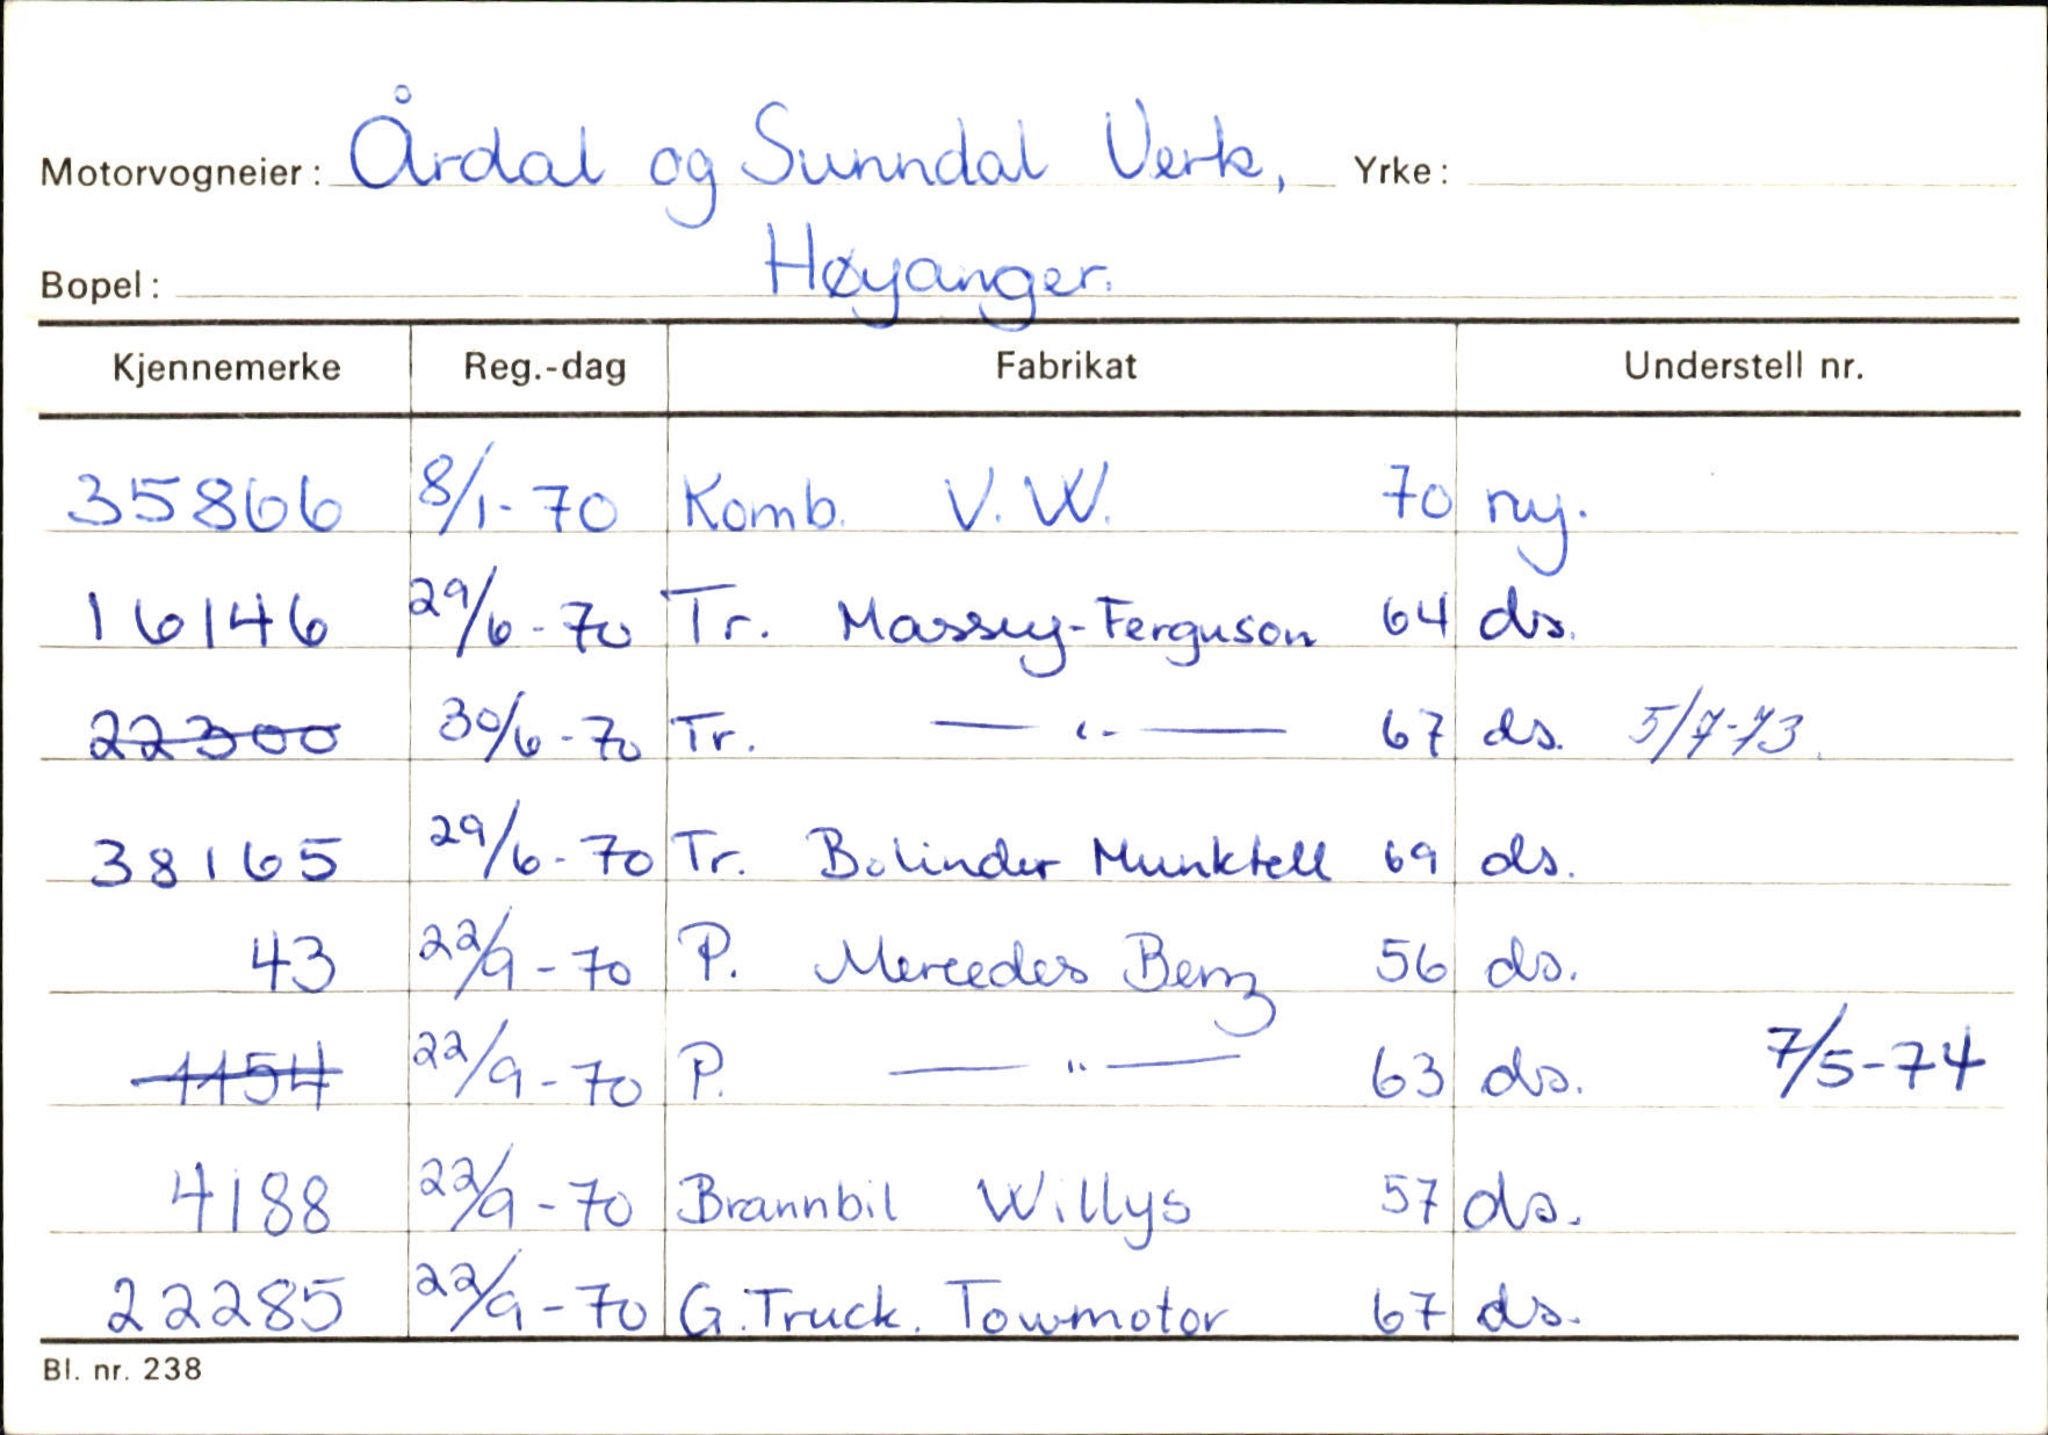 Motorvogneier: Årdal og Sunndal Verk, Yrke:
Bopel: Høyanger.
Kjennemerke Reg.-dag Fabrikat Understell nr.
35866 8/1-70 Komb. V.W. 70 ny.
16146 29/6-70 Tr. Massey-Ferguson 64 ds.
22300 30/6-70 Tr. — " — 67 ds. 5/7-73.
38165 29/6-70 Tr. Bolinder Munktell 69 ds.
43 22/9-70 P. Mercedes Benz 56 ds.
1154 22/9-70 P. — " — 63 ds. 7/5-74
4188 22/9-70 Brannbil Willys 57 ds.
22285 22/9-70 G.Truck. Towmotor 67 ds.
Bl. nr. 238